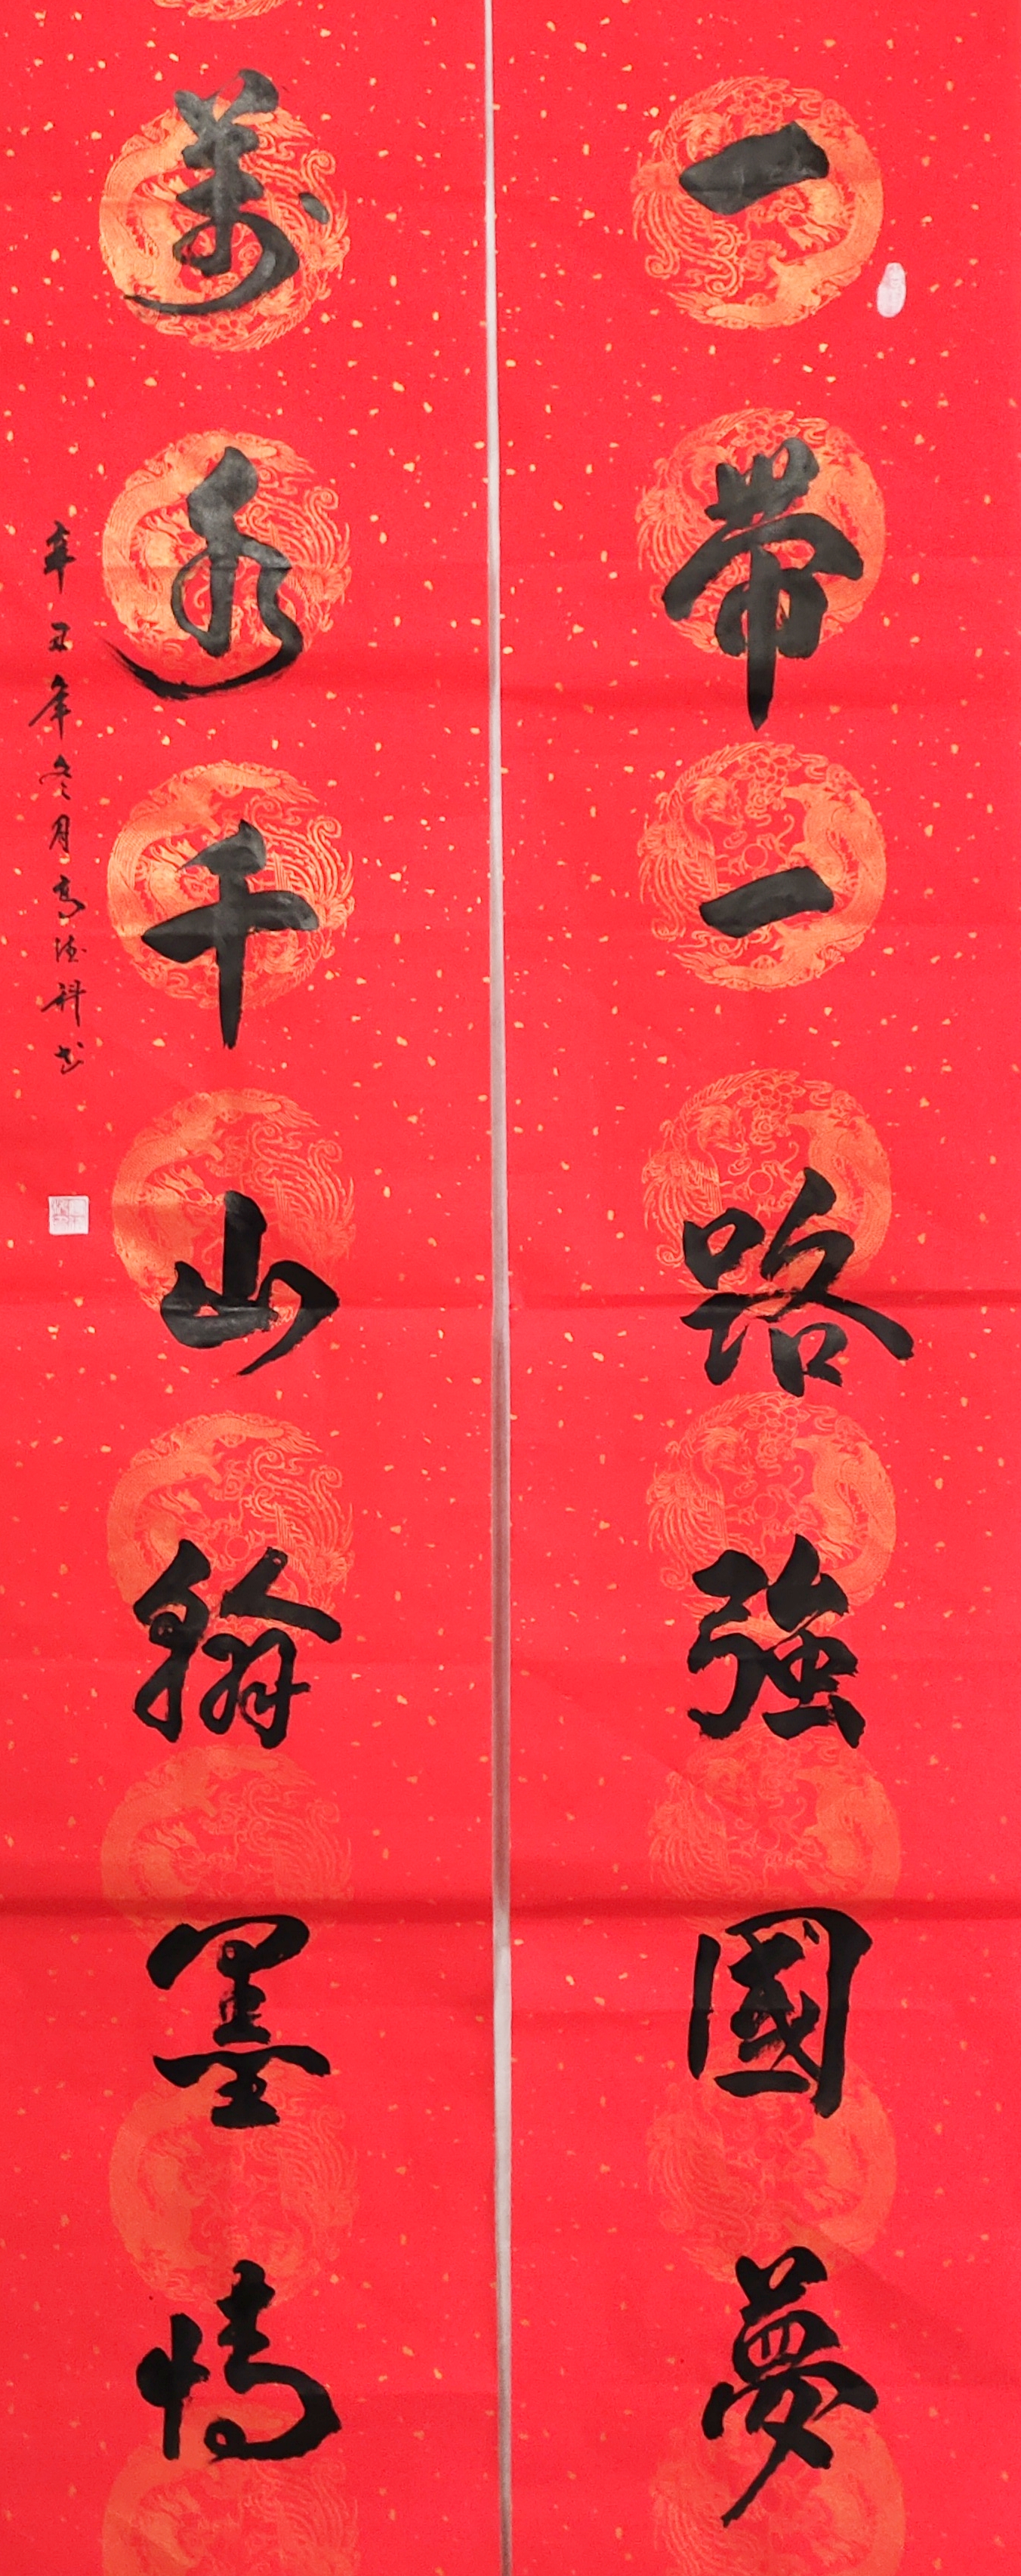 一帶一路強國夢
萬水千山翰墨情
辛丑年冬月高德科书